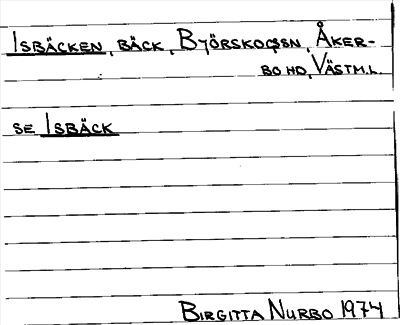 Isbäcken, bäck, Björskogssn, Åker-
bo hd, Västm.l.
se Isbäck
Birgitta Nurbo 1974